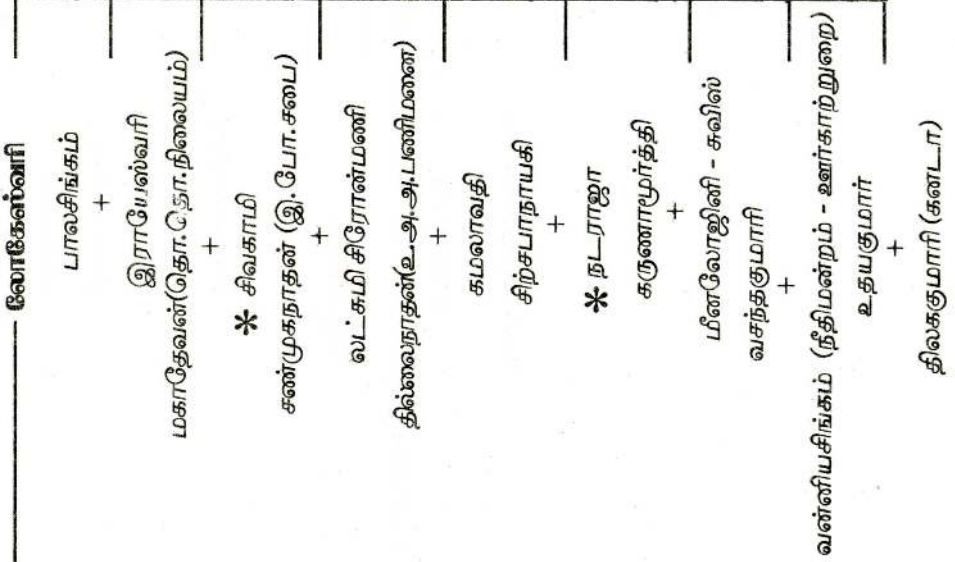 லோகேஸ்வரி
பாலசிங்கம்
+
இராயேஸ்வரி
மகாதேவன்(தொ.தொ.நிலையம்)
+
* சிவகாமி
சண்முகநாதன் (இ.போ.சபை)
+
லட்சுமி சிரோன்மணி
தில்லைநாதன்(உ.அ.அ.பணிமனை)
+
கமலாவதி
சிற்சபாநாயகி
+
* நடராஜா
கருணாமூர்த்தி
+
மீனலோஜினி - சுவிஸ்
வசந்தகுமாரி
+
வன்னியசிங்கம் (நீதிமன்றம் - ஊர்காற்றுறை)
உதயகுமார்
+
திலககுமாரி (கனடா)